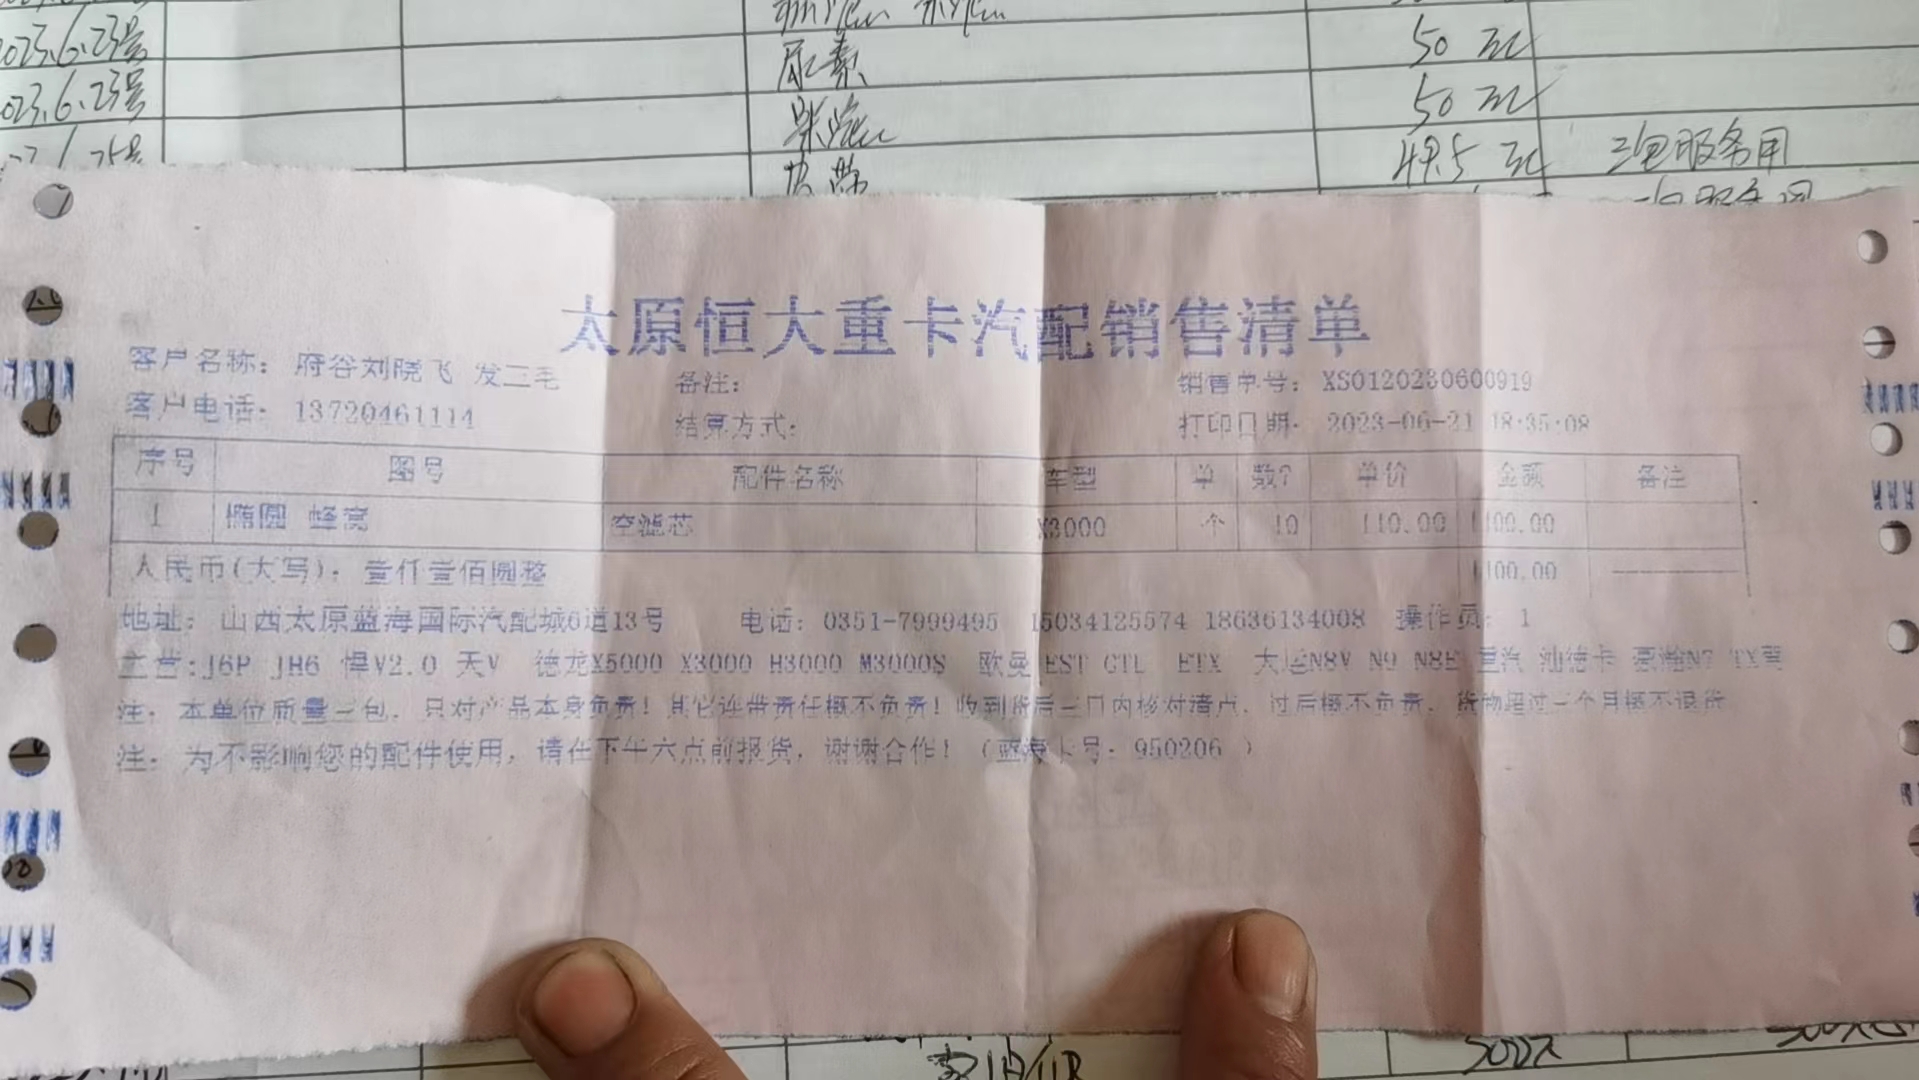 2023.6.23号 尿素 50元
2023.6.23号 柴油 50元
495元 三包服务用
太原恒大重卡汽配销售清单
客户名称: 府谷刘晓飞 发二毛 备注: 销售单号: XS0120230600919
客户电话: 13720461114 结算方式: 打印日期: 2023-06-21 18:35:08
序号 图号 配件名称 车型 单 数? 单价 金额 备注
1 椭圆 蜂窝 空滤芯 X3000 个 10 110.00 1100.00
人民币(大写): 壹仟壹佰圆整 1100.00
地址: 山西太原蓝海国际汽配城6道13号 电话: 0351-7999495 15034125574 18636134008 操作员: 1
主营:J6P JH6 悍V2.0 天V 德龙X5000 X3000 H3000 M3000S 欧曼 EST GTL ETX 大运N8V N9 N8E 重汽 汕德卡 豪瀚N7 TX
注: 本单位质量三包, 只对产品本身负责! 其它连带责任概不负责! 收到货后三日内核对清点, 过后概不负责, 货物超过一个月概不退货
注: 为不影响您的配件使用, 请在下午六点前报货, 谢谢合作! (蓝海卡号: 950206 )
500元